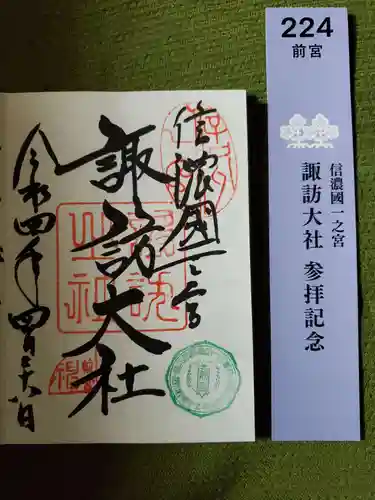 信濃國一之宮
諏訪大社
令和四年四月二十八日
224
前宮
信濃國一之宮
諏訪大社 参拝記念